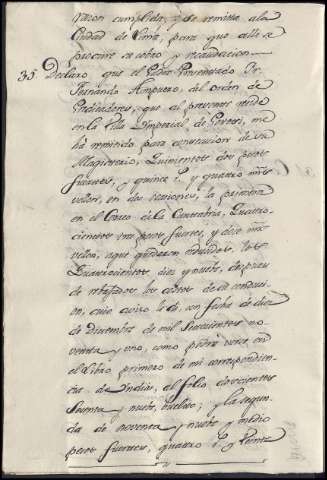 razon cumplida, y se remita a la
Ciudad de Lima, para que alli se
procure su cobro y recaudacion
35 Declaro que el Padre Presentado Fr.
Fernando Ampuero, del orden de
Predicadores, que al presente reside
en la Villa Imperial de Potosi, me
há remitido para consecucion de su
Magisterio, Quinientos dos pesos
fuertes, y quince r.s y quatro mrs
vellon, en dos ocasiones, la primera
en el Correo de la Cantabria, Quatro
cientos tres pesos fuertes, y diez mrs
vellon, a que quedaron reducidos los
Quatrocientos diez y nueve, despues
de rebajados los costos de su conduci
on, cuio aviso le di con fecha de diez
de diciembre de mil Setecientos no
venta y uno, como podrá verse en
el Libro primero de mi correspondien
cia de Indias, al folio doscientos
Setenta y nueve, buelto; y la segun
da de noventa y nueve y medio
pesos fuertes, quatro r.s y treinta